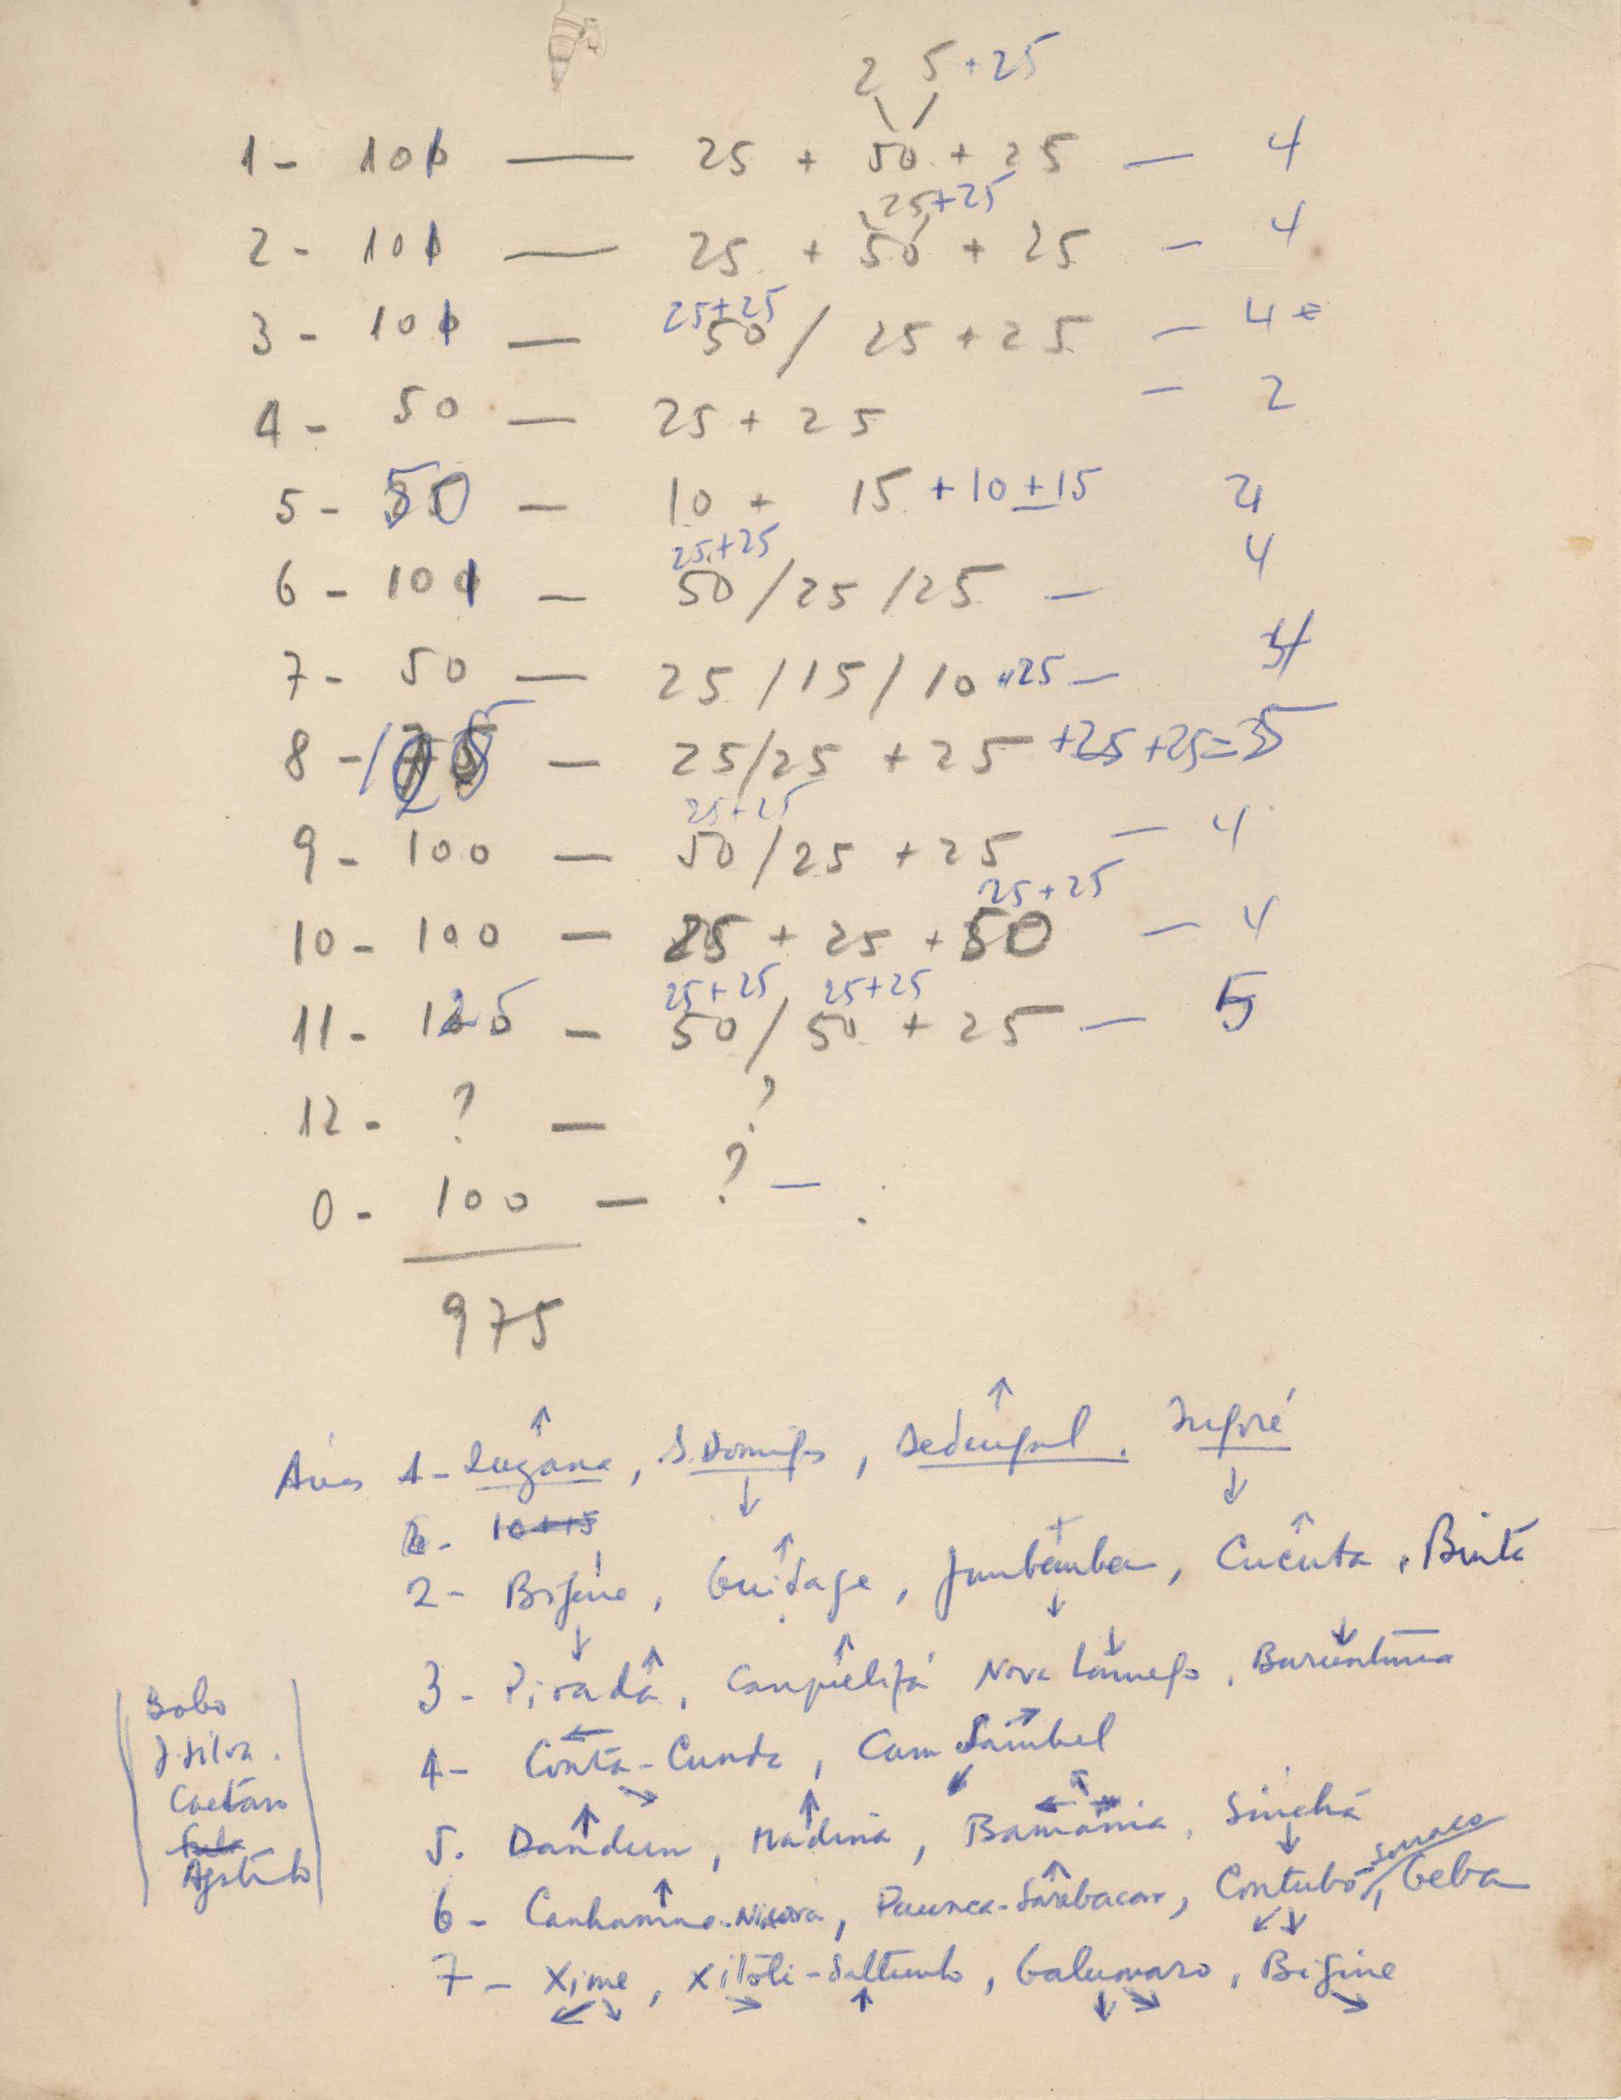 2 5 + 25
1 - 100 — 25 + 50 + 25 — 4
25+25
2 - 100 — 25 + 50 + 25 — 4
25+25
3 - 100 — 50 / 25 + 25 — 4
4 - 50 — 25 + 25 — 2
5 - 50 — 10 + 15 + 10 + 15 4
25+25
6 - 100 — 50 / 25 / 25 — 4
7 - 50 — 25 / 15 / 10 25 — 4
8 - 125 — 25/25 + 25 +25 +25 = 5
25+25
9 - 100 — 50 / 25 + 25 — 4
25+25
10 - 100 — 25 + 25 + 50 — 4
25+25 25+25
11 - 125 — 50 / 50 + 25 — 5
12 - ? — ?
0 - 100 — ? —
975
1 - , S. Domingos, Sedengal.
10+15
2 - Bigine, Guidage, Jumbemba, Cucuta, Binta
3 - Pirada, Canquelifá Nova Lamego, Buruntuma
4 - Conta-Cunda, Cam Sambel
5. Dandum, Madina, Bamania, Sinchá
6 - Canhamina, Paunca-Sarebacar, Contubo, Sonaco, Geba
7 - Xime, Xitoli-Saltinho, Galumaro, Bigine
Bobo
J. Silva.
Caetano
Agostinho